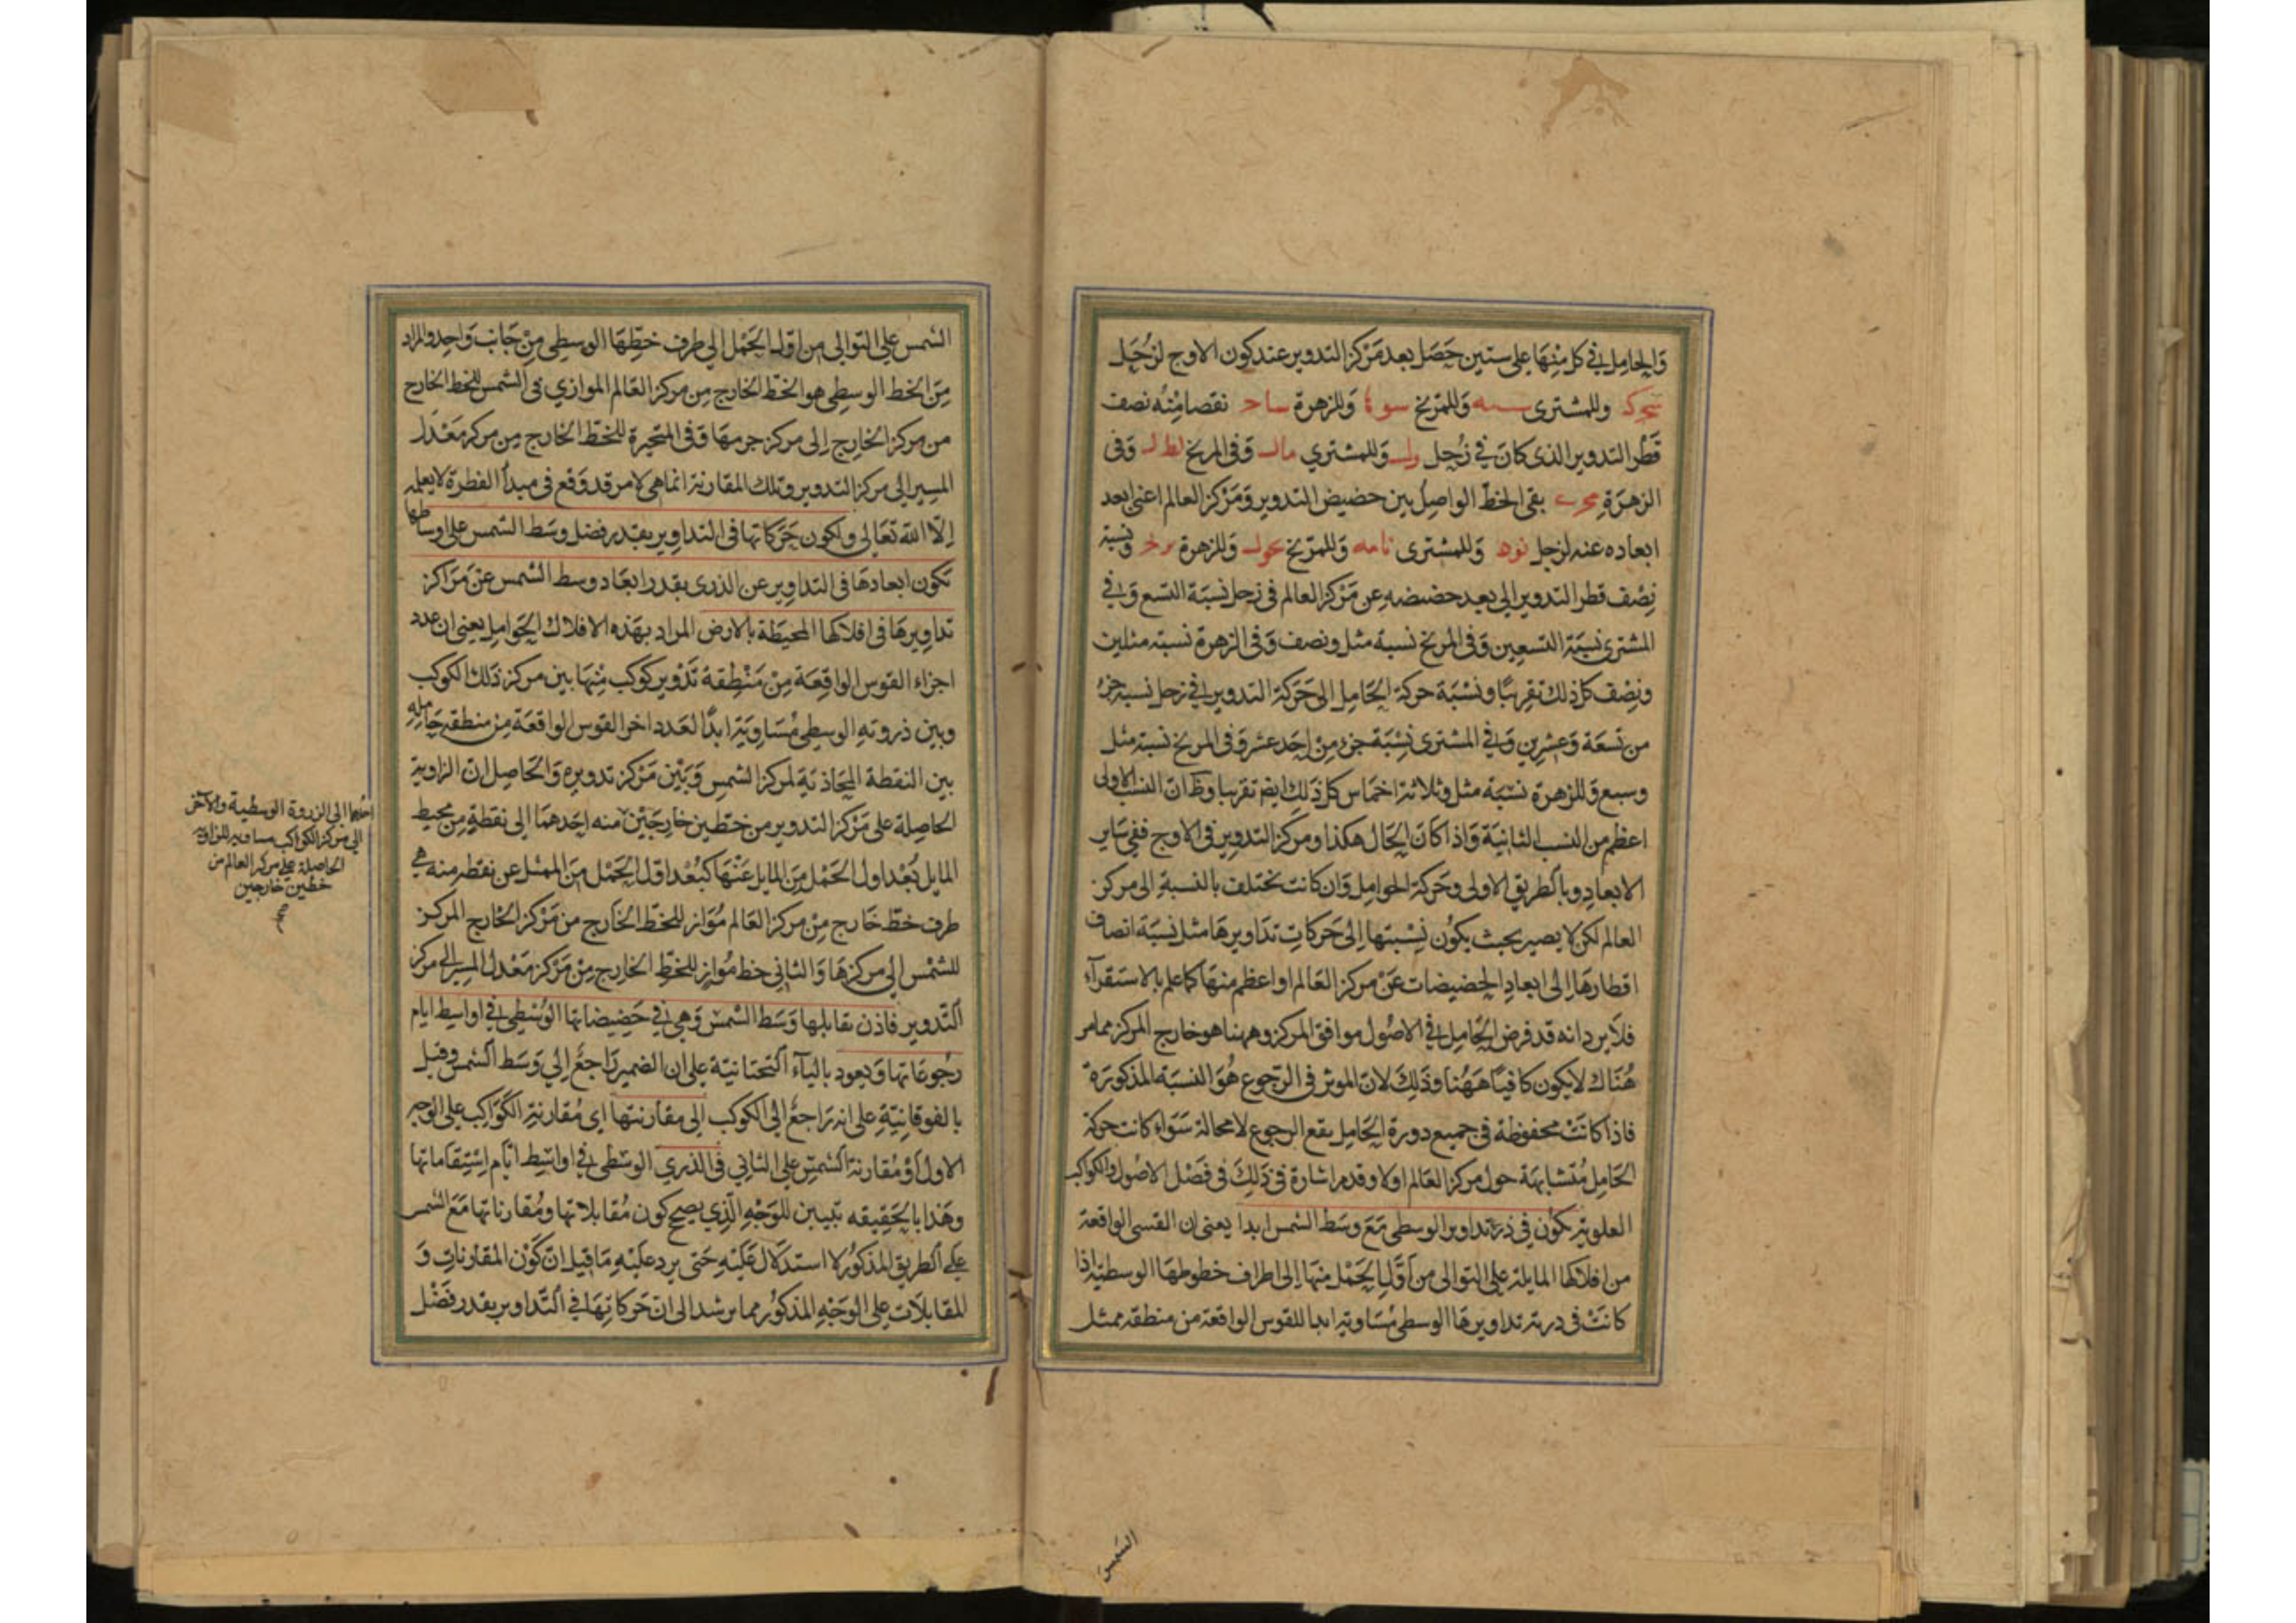 وَالحامِل في كل مِنْهَا على ستين حَصَل بعد مَرْكز التدوير عند كون الاوج لزُحَل
وللمشترى وَللمرّيخ وَللزهرة نقصا مِنْه نصف
قطر التدوير الذى كانَ في زُحِل وَللمشتري وَفى المريخ وَفى
الزهرَةِ بقى الخطّ الواصِلُ بين حضيض التدوير وَمَرْكز العالم اعنى ابعد
ابعاده عنه لزحل وَللمشترى وَللمرّيخ وَللزهرة وَنسبَة
نِصْف قطر التدوير الى بعد حضيضه عن مَرْكز العالم فى زحل نسبَة التسع وَفي
المشترى نسبَة التسعين وَفى المريخ نسبة مثل ونصف وَفى الزهرة نسبة مثلين
ونِصْف كل ذلك تقريبًا ونسْبَة حركة الحَامِل الى حَرَكة التدوير في زحل نسبة جزء
من تسعَة وَعشرين وَفي المشترى نسْبَة جزء مِنْ احَد عشر وَفى المريخ نسبة مثل
وسبع وَللزهرة نسْبَة مثل وثلاثة اخمَاس كل ذَلِك ايضا تقريبا وظ ان النسب الاولى
اعظم من النسب الثانيَة وَاذا كانَ الحَال هكذا ومركز التدوير فى الاوج ففي سَاير
الابعاد وبالطريق الاولى وحَركة الحوامل وَان كانت تختلف بالنسبة الى مركز
العالم لكن لا يصير بحيث يكوُن نِسْبتها اِلى حَركاتِ تدَاويرهَا مثل نسبَة انصاف
اقطارهَا اِلى ابعادِ الحضيضات عَنْ مركز العَالم او اعظم منهَا كما علم بالاستقرآء
فلا يرد انه قد فرض الحَامِل في الاصُول موافق المركز وههنا هو خارج المركز مما مر
هُنَاك لا يكون كافيًا هَهُنا وَذَلِكَ لانّ الموثر فى الرّجوع هُوَ النسبَة المذكورَة
فاذا كانَتْ محفوظة فى جميع دورة الحَامِل يقع الرجوع لا محالة سَوَاء كانت حركة
الحَامِل مُتَشابهَة حول مركز العَالم او لا وقد مر اشارة فى ذَلِكَ فى فَصْل الاصُول والكواكب
العلوية تكوُن في ذرى تداوير الوسطى مَعَ وسَط الشمس ابدا يعنى ان القسى الواقعة
من افلاكها المايلة على التوالى من اَوَّل الحَمْل منهَا اِلى اطراف خطوطهَا الوسطيّة اذا
كانَتْ فى دريَة تداويرهَا الوسطى مُسَاويَة ابدا للقوس الواقعة من منطقة ممثل
الشمس
الشمس على التوالى من اوّل الحَمْل الي طرف خطِّهَا الوسطِى مِنْ جَانب وَاحِد والمراد
مِنَ الخط الوسطِى هو الخطّ الخارج مِن مركز العَالم الموازي فى الشمس للخط الخارج
من مركز الخَارِج اِلى مركز جرمهَا وَفى المتحَيّرة للخطّ الخارج مِن مركز مَعْدَل
المسِير الى مركز التدوير وتلك المقارنة انما هى لامر قد وَقَع فى مبدأ الفطرة لا يعلمه
اِلّا اللّه تعَالى ولكون حَرَكاتها فى التداوِير بقدر فضل وسَط الشمس على اوساطها
تكون ابعادهَا فى التداوِير عن الذرى بقدر ابعَاد وسط الشمس عَنْ مَرَاكز
تداوِيرهَا فى افلاكها المحيطَة بالارض المراد بهَذه الافلاك الحَوامِل يعنى ان عدد
اجزاء القوس الواقِعَة مِنْ مَنْطِقة تَدْوير كوكب مِنْهَا بين مركز ذلك الكوكب
وبين ذروته الوسطى مُسَاويَة ابدًا لعَدد اخر القوس الواقعَة مِن منطقة حَامِله
بين النقطة المحَاذيَة لمركز الشمس وَبَيْن مَرْكز تدويره وَالحَاصِل ان الزاوية
الحَاصِلة على مَرْكز التدوير من خطّين خَارِجَيْن منه احَدهمَا الى نقطةٍ مِن محيط
المايل بُعْد اول الحَمْل مِن المايل عَنْهَا كبُعْد اوّل الحَمْل مِن الممثل عن نقطة منه هي
طرف خطّ خَارج مِنْ مركز العَالم مُوَاز للخطّ الخَارج من مَرْكز الخَارج المركز
للشمْس الى مركزهَا وَالثانى خط مُوازٍ للخطّ الخارج مِنْ مَرْكز مَعْدل المسير الى مركز
التّدوير فاذن يقابلها وَسَط الشمس وَهي في حَضِيضاتها الوُسْطى في اواسِط ايام
رجُوعَاتها وَيعود باليآء التحتانيّة على ان الضمير رَاجعٌ اِلي وَسَط الشمس وقيل
بالفوقانِيّةِ على انه رَاجعٌ الى الكوكب الى مقارنتها اى مُقارنة الكَوَاكِب على الوجه
الاول اوْ مُقارنة الشمسِ على الثاني في الذري الوسْطى في اواسِط ايّام اِسْتِقَامَاتها
وهَذا بالحَقيقه تبيين للوَجْه الّذِي يصحّ كون مُقابلاتها ومُقارناتها مَعَ الشمس
على الطريق المذكوُر لا استدلال عَلَيْهِ حَتى يرد عليْه مَا قيل انّ كَوْن المقارناتِ وَ
المقابلات على الوَجْهِ المذكوُر مما يرشد الى انّ حَركاتِهَا في التّداوير بقدر فَضْل
احدهما الى الذروة الوسطية والآخر
الى مركز الكواكب مساوية للزاوية
الحاصلة على مركز العالم من
خطين خارجين
صح